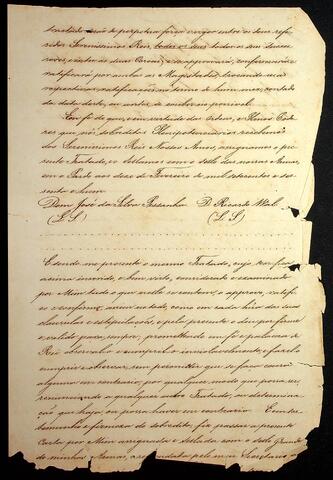 tratado serão de perpetua força e vigor entre os seus refe-
ridos Serenissimos Reis, todos os seus
sores, e entre as suas Coroas; e se approvará, confirmará e
ratificará por ambas as Magestades, trocando-se as
respectivas ratificações no termo de hum mez, contado
da data deste, ou antes se couber no possivel.
Em fé do que, e em virtude das Ordens, e Plenos Pode-
res que nós sobreditos Plenipotenciarios recebemos
dos Serenissimos Reis Nossos Amos, assignamos o pre-
sente Tratado, e o Sellamos com o sello das nossas Armas,
em o Pardo aos doze de Fevereiro de mil setecentos e ses-
senta e hum.
Dom José da Silva Pessanha D. Ricardo Wal
(L. S.) (L. S.)
E sendo-me presente o mesmo Tratado, cujo theor fica
acima inserido, e bem visto, considerado e examinado
por Mim tudo o que nelle se contém, o approvo, ratifi-
co e confirmo, assim no todo, como em cada húa das suas
clausulas e estipulações, e pelo presente o dou por firme
e valido para sempre, promettendo em fé e palavra de
Rei observal-o e cumpril-o inviolavelmente, e fazel-o
cumprir e observar, sem permittir que se faça cousa
alguma em contrario, por qualquer modo que possa ser,
renunciando a qualquer outro Tratado, ou determina-
ção que haja, ou possa haver em contrario. E em tes-
temunho e firmeza do sobredito fiz passar a presente
Carta, por Mim assignada e Sellada com o sello Grande
de minhas Armas, e referendada pelo meu Secretario